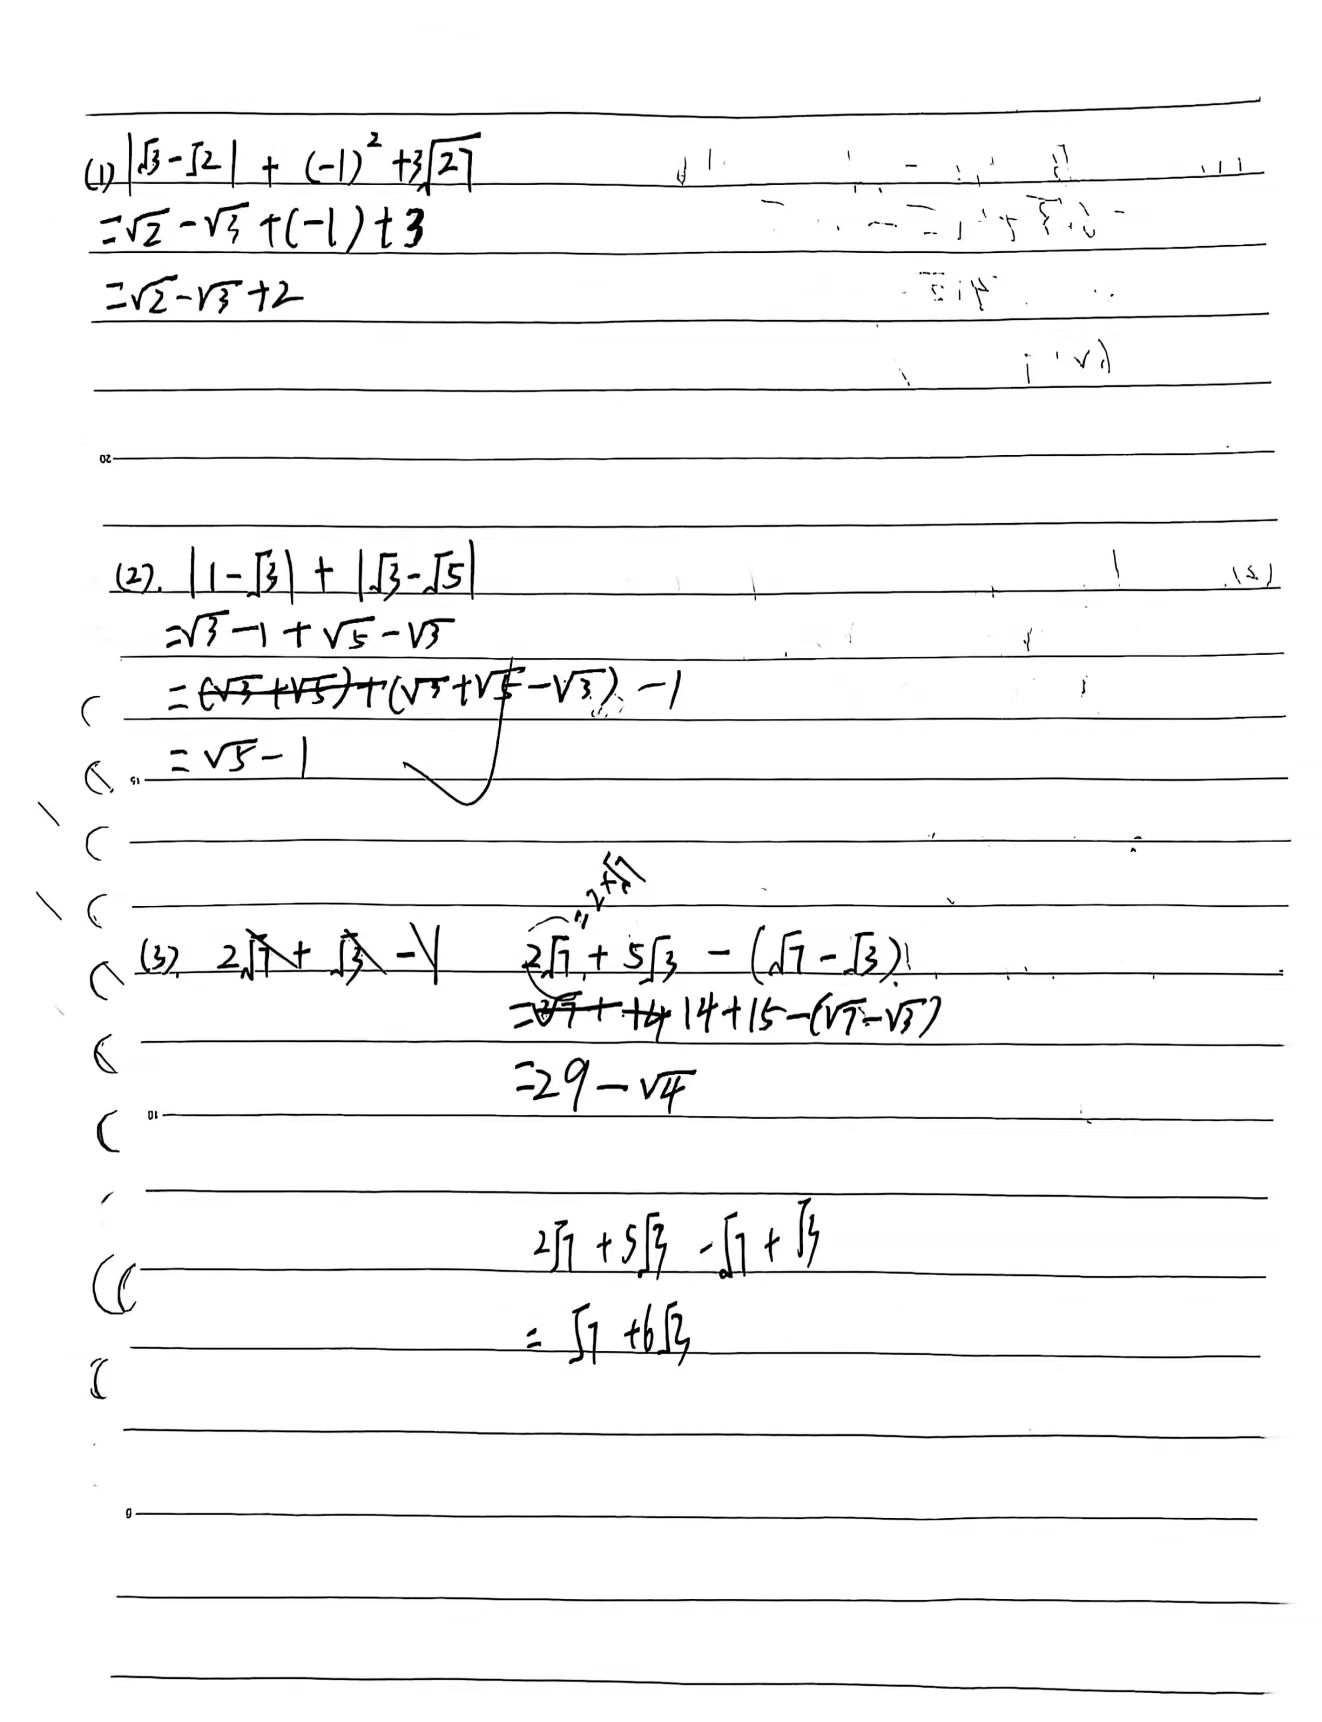 (1) |√3-√2| + (-1)² + ³√27
=√2-√3+(-1)+3
=√2-√3+2
20
(2). |1-√3| + |√3-√5|
=√3-1+√5-√3
= (√3+√5)+(√3+√5-√3)-1
= √5-1
15
"2+√7
(3). 2√7+√3-√ 2√7+5√3-(√7-√3)
=√7++4 14+15-(√7-√3)
=29-√4
10
2√7+5√3-√7+√3
= √7+6√3